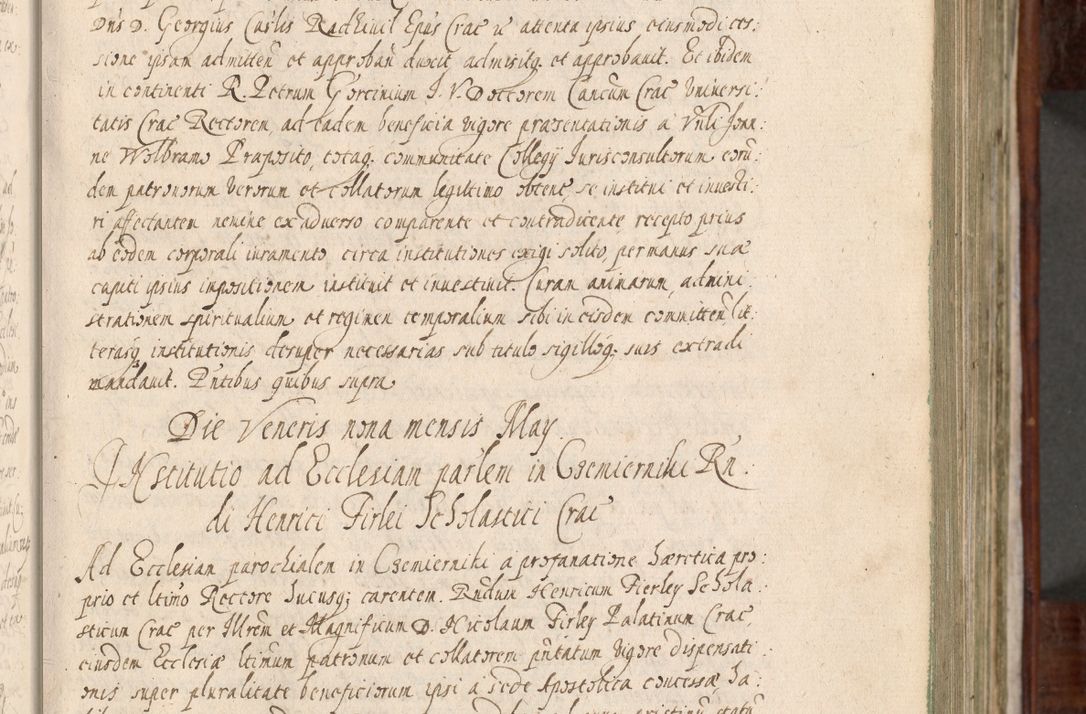 Dns D. Georgius Carlis Radzivil Epus Crac ut attenta ipsius eiusmodi ces:
sione ipsam admitten̄ et approban̄ duxit admisitq. et approbauit. Et ibidem
in continenti R. Petrum Gorcinium I. V. Doctorem Cancūm Crac Vniversi:
tatis Crac Rectorem, ad eadem beneficia vigore præsentationis a Vn̄li Joan:
ne Wolbramo Præposito, totaq. communitate Collegy Jurisconsultorum eorū:
dem patronorum verorum et collatorum legittimo obtent, se institui et inuesti:
ri affectantem nemine ex adverso comparente et contradicente, recepto prius
ab eodem corporali iuramento, circa institutiones exigi solito, per manus suæ
capiti ipsius impositionem instituit et inuestiuit. Curam animarum, admini:
strationem spiritualium et regimen temporalium sibi in eisdem committen̄, lit:
terasq. institutionis desuper necessarias sub titulo sigilloq. suis extradi
mandauit. Pntibus quibus supra
Die Veneris nona mensis May
Institutio ad Ecclesiam parlem in Czemierniki Rn:
di Henrici Firlei Scholastici Crac
Ad Ecclesiam parochialem in Czemierniki a profanatione hæretica pro:
prio et ltimo Rectore hucusq; carentem. Rndum Henricum Fierley Schola:
sticum Crac per Illrem et Magnificum D. Nicolaum Firley Palatinum Crac,
eiusdem Ecclesiæ ltimum patronum et collatorem pntatum vigore dispensati:
onis super pluralitate beneficiorum ipsi a sede Apostolica concessæ, ha: